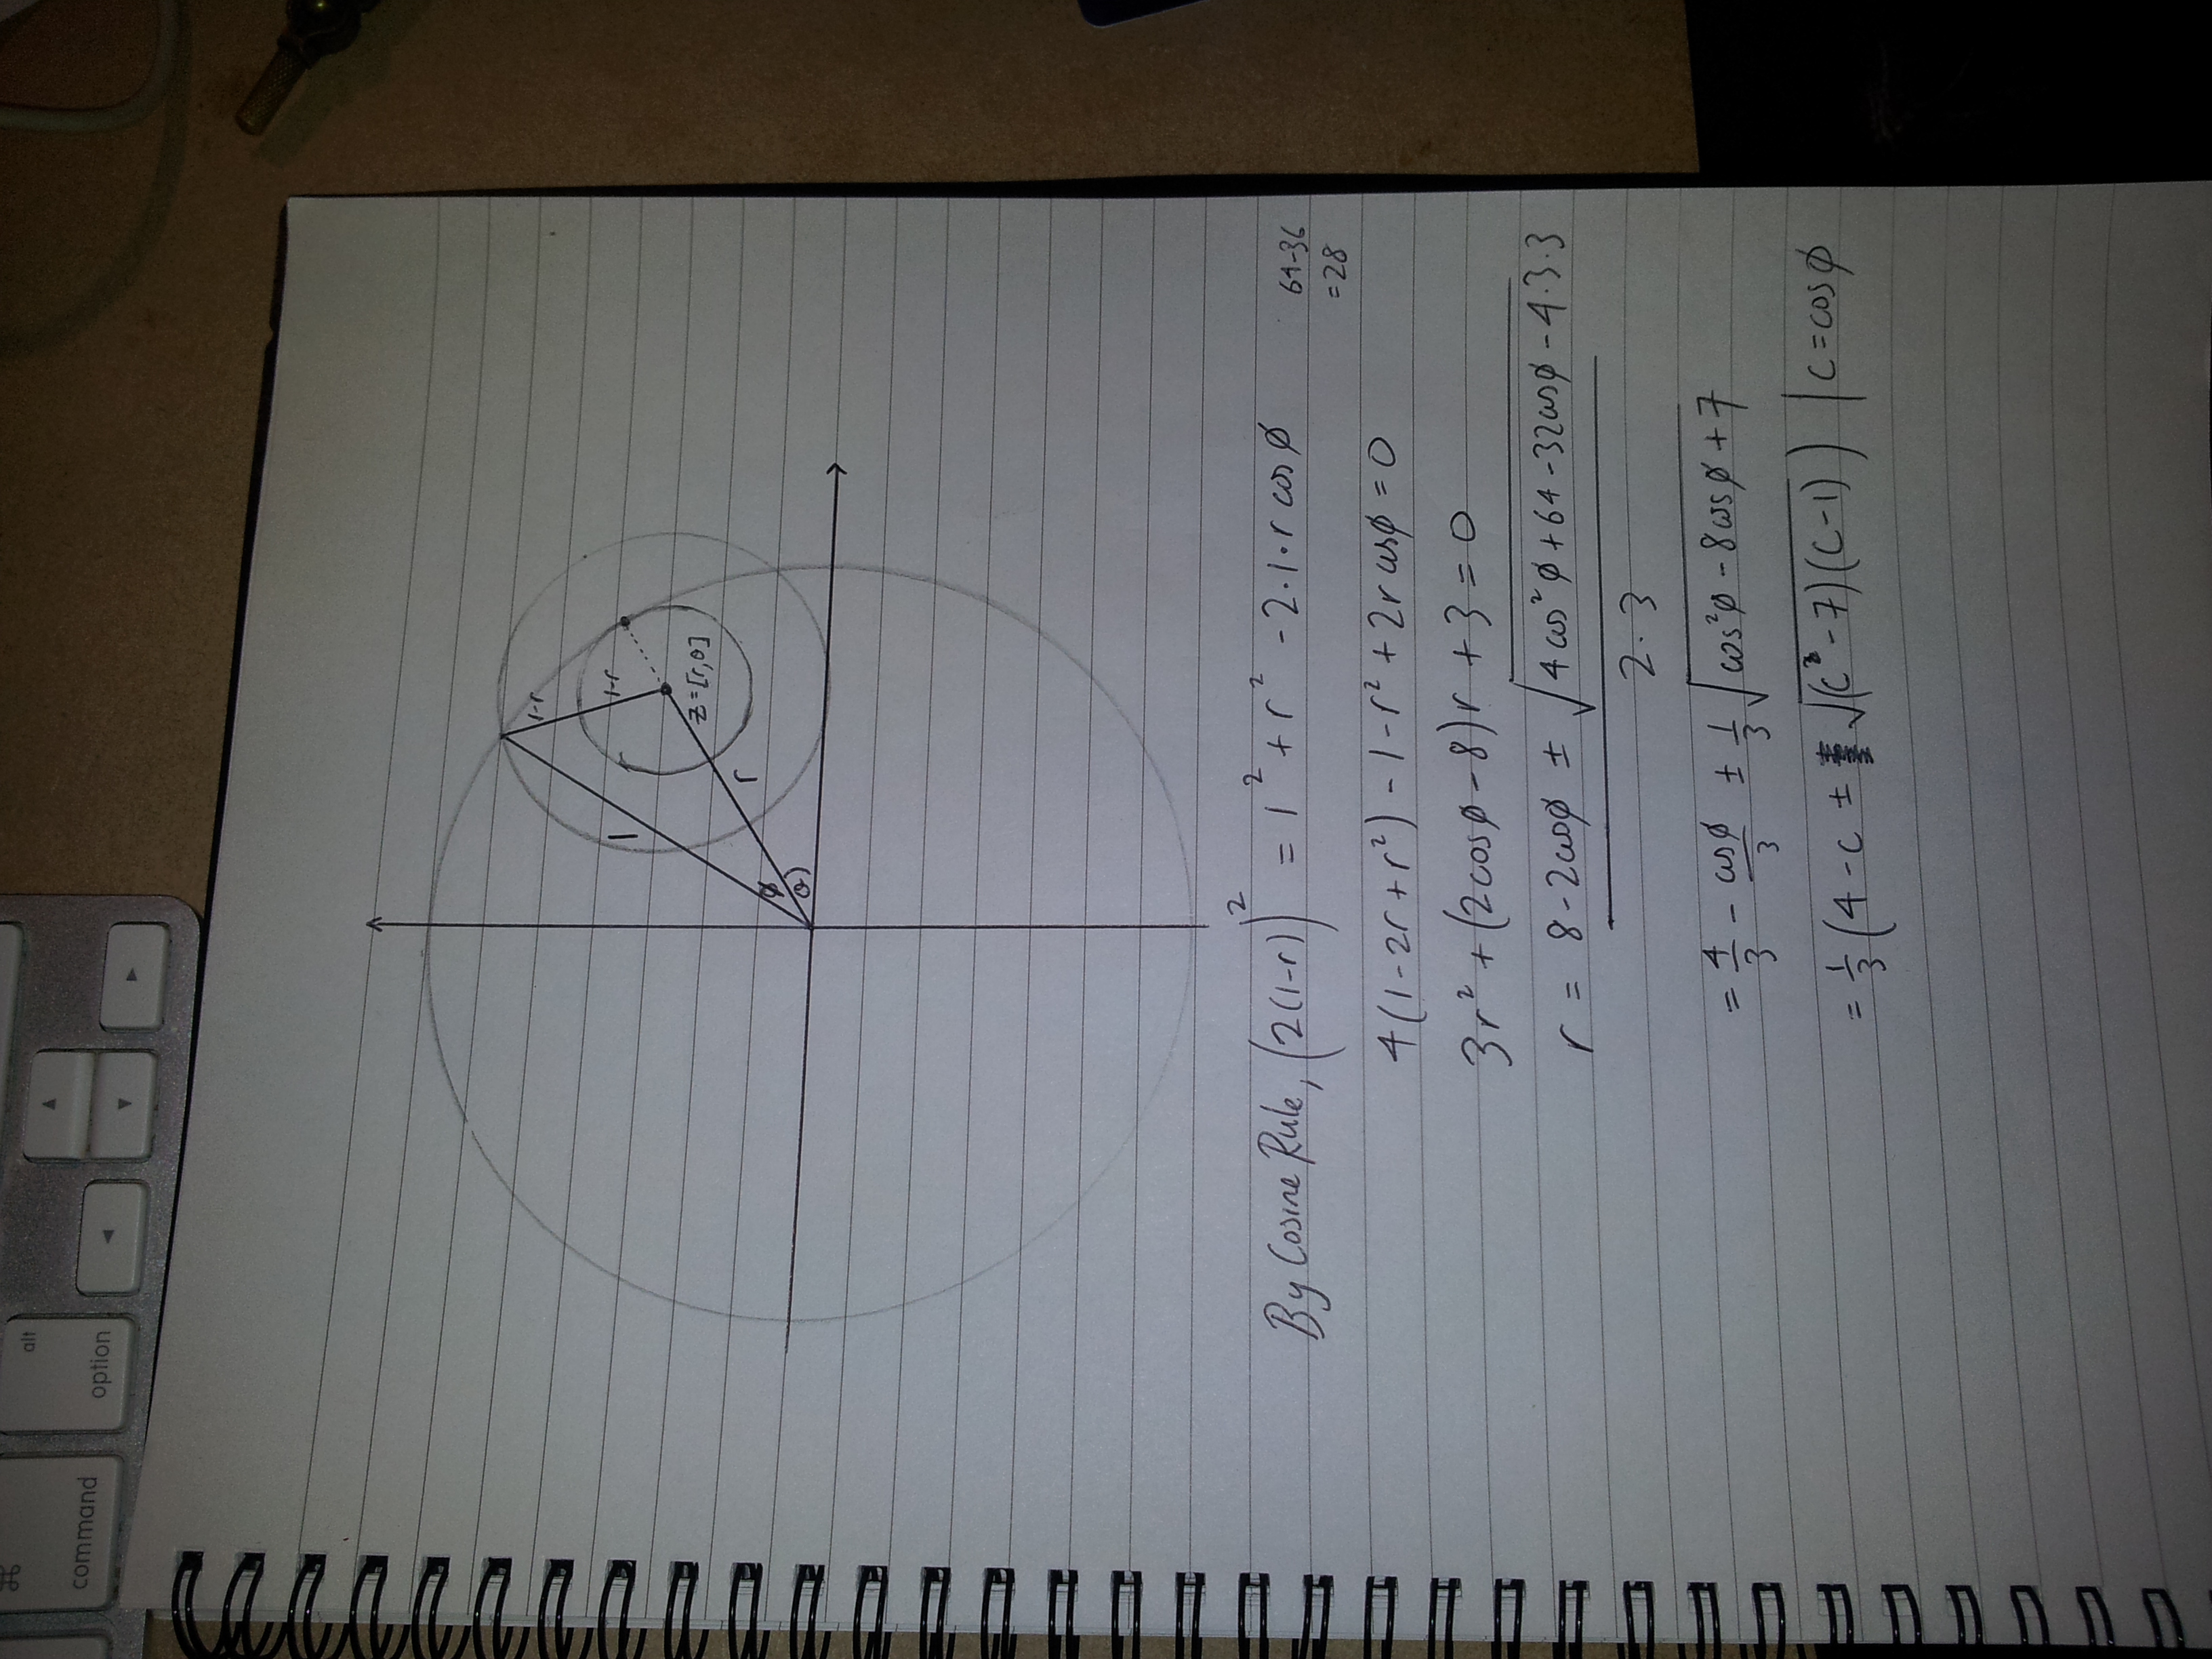 1
1-r
1-r
r
z=[r,θ]
ϕ
θ
By Cosine Rule, (2(1-r))² = 1² + r² - 2·1·r cosϕ
64-36
=28
4(1-2r+r²) - 1 - r² + 2r cosϕ = 0
3r² + (2cosϕ - 8)r + 3 = 0
r = 8 - 2cosϕ ± √4cos²ϕ + 64 - 32cosϕ - 4·3·3
2·3
= 4/3 - cosϕ/3 ± 1/3 √cos²ϕ - 8cosϕ + 7
= 1/3 (4 - c ± √(c - 7)(c - 1)) | c = cosϕ
alt
option
⌘
command